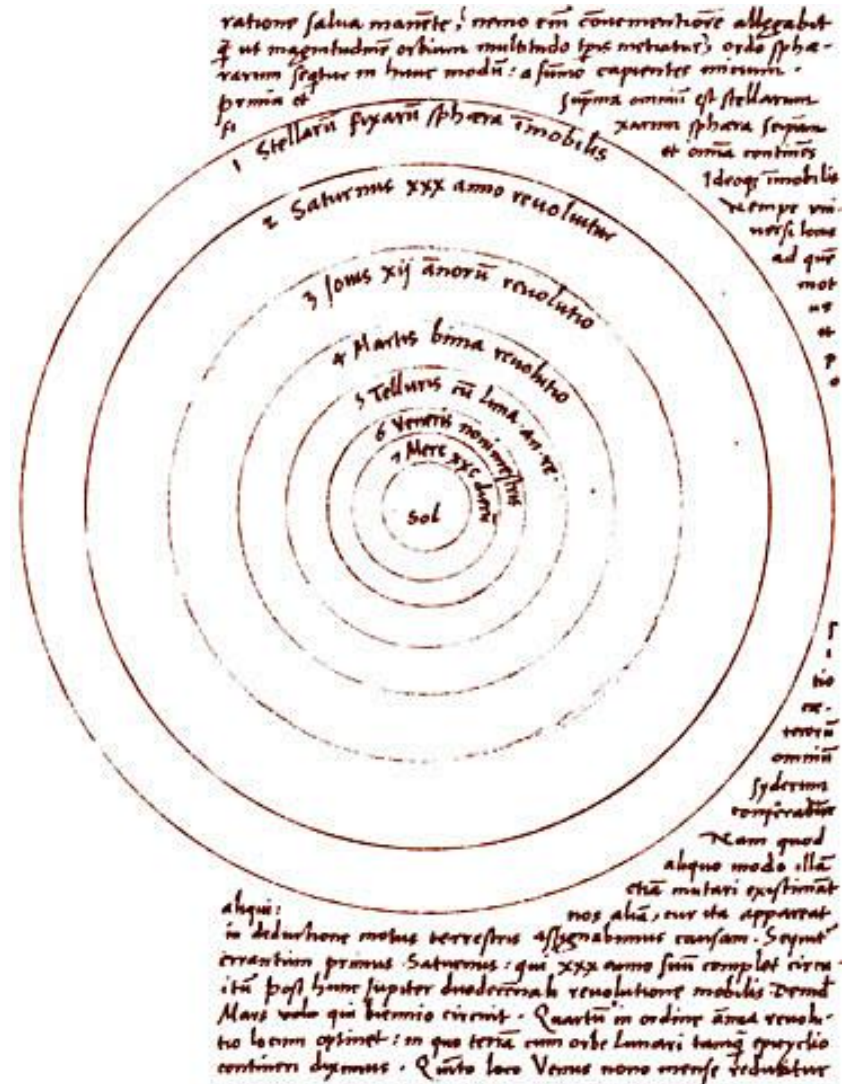 ratione salva manēte, nemo em̄ cōvenientiorē allegabit
q̄ ut magnitudinē orbium multitudo tp̄is metiatur, ordo sphæ-
rarum seqtur in hunc modū: a sūmo capientes initium.
prima et suprema omniū est stellarum
fi xarum sphæra seipsam
et omīa continēs
Ideoqꝫ īmobilis
Nempe uni
versi locus
ad quē
mot
us
et
p
o
1 Stellarū fixarū sphæra īmobilis
2 Saturnus xxx anno revolvitur
3 Jovis xij ānorū revolutio
4 Martis bima revolutio
5 Telluris cū luna an. re.
6 Veneris nonimestris
7 Merc xxc dierū
Sol
s
i
tio
cæ-
terorū
omniū
syderum
conferatur
Nam quod
aliquo modo illā
etiā mutari existimāt
aliqui: nos aliā, cur ita appareat
in deductione motus terrestris assignabimus causam. Sequit̄
errantium primus Saturnus: qui xxx anno suū complet circu
itū post hunc Jupiter duodecennali revolutione mobilis Deind
Mars volo qui biennio circuit. Quartū in ordine ānua revolu-
tio locum optinet: in quo terrā cum orbe lunari tamq̄ epicyclo
contineri diximus. Quīto loco Venus nono mense reducitur